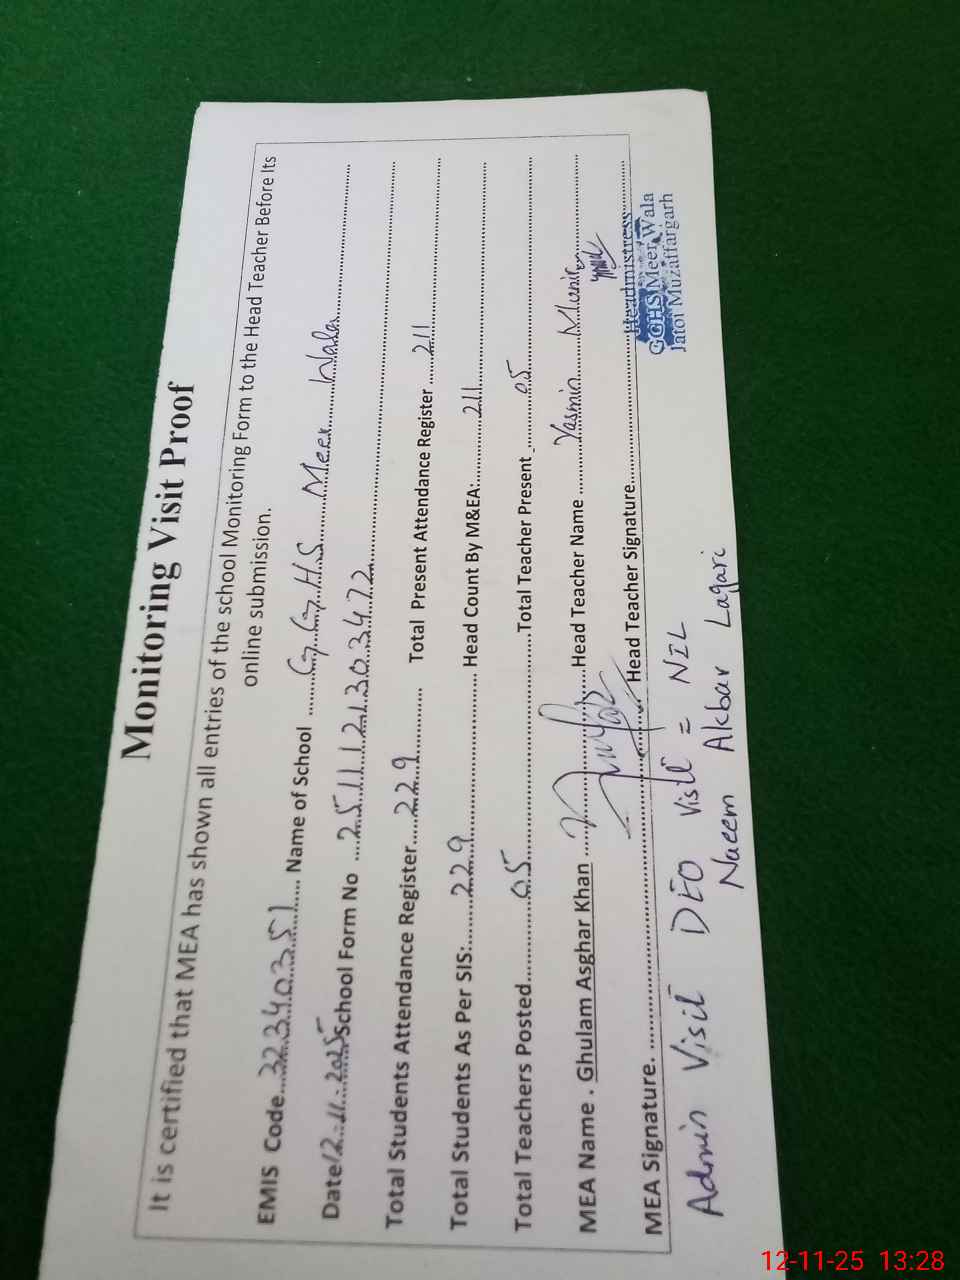 Monitoring Visit Proof
It is certified that MEA has shown all entries of the school Monitoring Form to the Head Teacher Before Its
online submission.
EMIS Code...32340351... Name of School ...G.G.H.S... Meer Wala...
Date 12-11-2025 School Form No ...2511121303472...
Total Students Attendance Register...229... Total Present Attendance Register ...211
Total Students As Per SIS:...229... Head Count By M&EA:...211
Total Teachers Posted...05...Total Teacher Present...05
MEA Name . Ghulam Asghar Khan ...Head Teacher Name ...Yasmin Munir...
MEA Signature. ... Head Teacher Signature...
Headmistress
GGHS Meer Wala
Jatoi Muzaffargarh
Admin Visit DEO Visit = NIL
Naeem Akbar Lagari
12-11-25 13:28